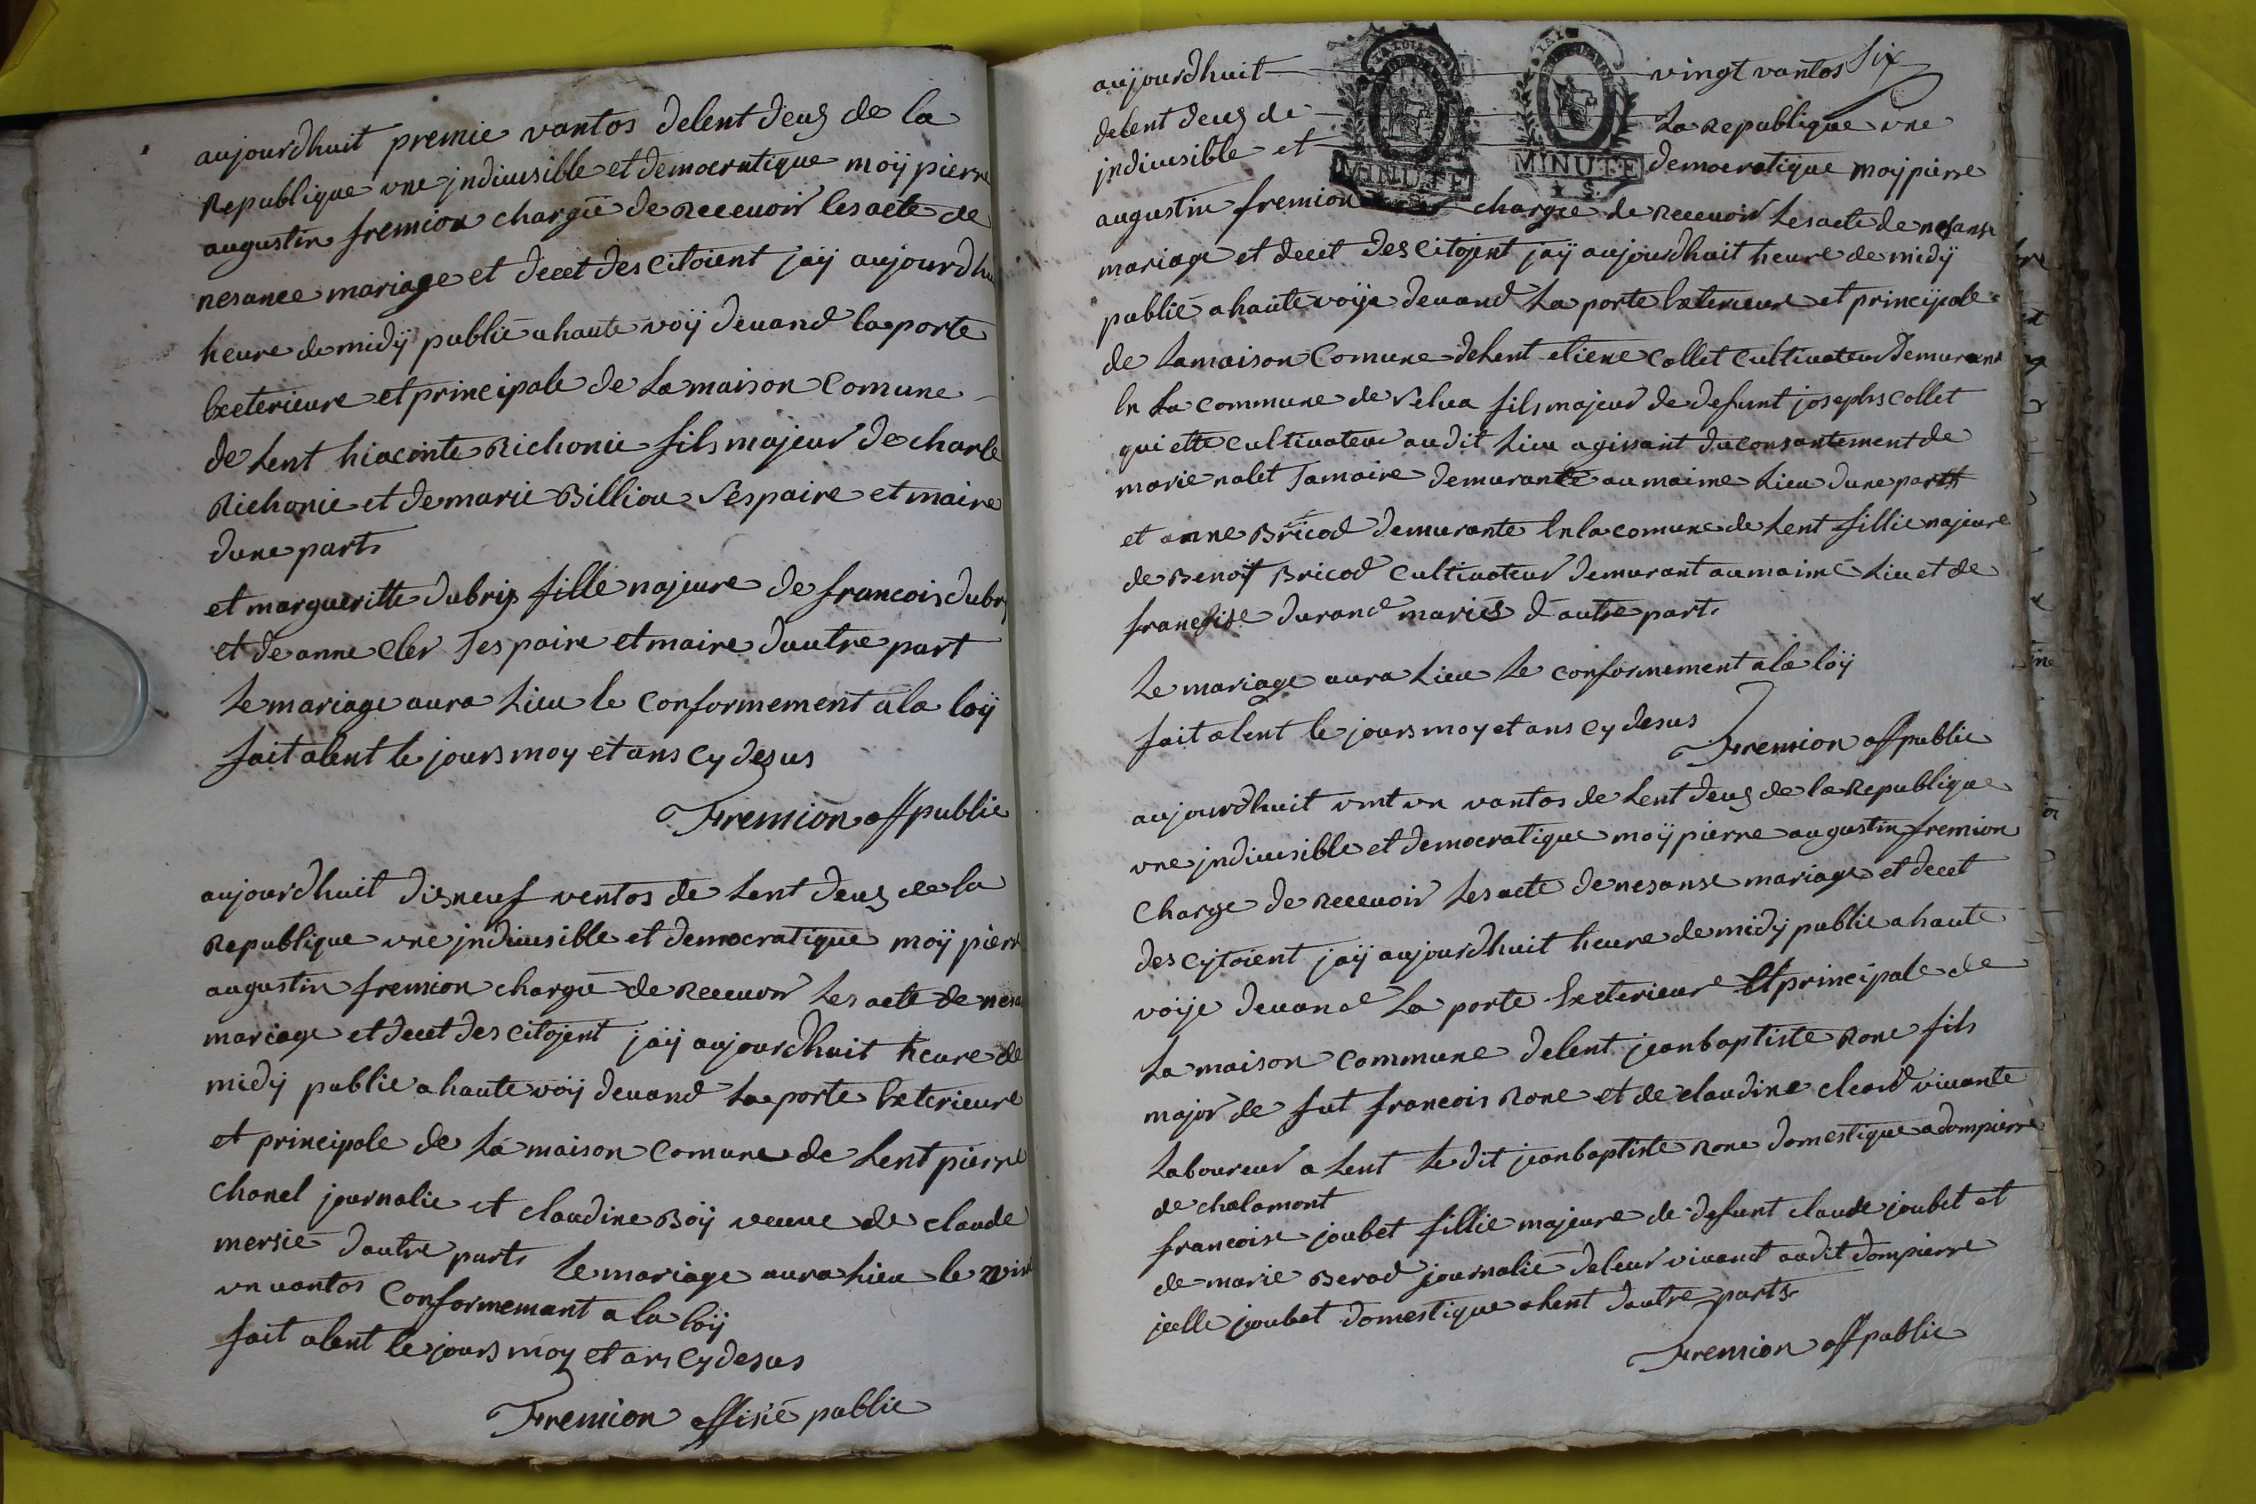 aujourdhuit premie vantos delent deus de la
Republique une jndiuisible et democratique moÿ pierre
augustin fremion chargié de Receuoir les acte de
nesance mariage et decet des citoient jaÿ aujourdhu
heure de midÿ publié a haute voÿ deuand la porte
Exterieure et principale de La maison Comune
de Lent hiacinte Richonie fils majeur de charle
Richonie et de marie Billiou Ses paire et maire
dune part
et margueritte dubrÿ fille majeure de francois dubr
et de anne cler Ses paire et maire dautre part
Le mariage aura Lieu le conformement a la loÿ
fait alent le jours moy et ans cy desus
Fremion off public
aujourdhuit disneuf ventos de Lent deus de la
Republique une jndiuisible et democratique moÿ pierr
augustin fremion chargié de Receuoir Les acte de nesa
mariage et decet des citojent jaÿ aujourdhuit heure de
midÿ publie a haute voÿ deuand La porte Exterieure
et principale de La maison Comune de Lent pierre
chanel journalie et claudine Boÿ veuue de claude
mersie dautre part Le mariage aura Lieu le vint
un vantos conformemant a la loÿ
fait alent le jours moy et ans cy desus
Fremion offisié public
six
aujourdhuit vingt vantos
delent deus de La Republique une
jndiuisible et democratique moÿ pierre
MINUTE
MINUTE
augustin fremion chargie de Receuoir Les acte de nesanse
mariage et decet des citojent jaÿ aujourdhuit heure de midÿ
publié a haute voije deuand La porte Exterieure et principale
de La maison Comune de Lent etiene collet cultivateur demurant
En La commune de Selua fils majeur de defunt josephs collet
qui ette cultiuateur audit Lieu agissant du consantement de
marie nalet Samaire demurante au maime Lieu dune part
et anne Bricod demurante En la comune de Lent fillie majeure
de Benoit Bricod cultiuateur demurant au maime Lieu et de
francoise durand mariés d'autre part
Le mariage aura Lieu Le conformement a la loÿ
fait alent le jours moy et ans cy desus
Fremion off public
aujourdhuit vint un vantos de Lent deus de la Republique
une jndiuisible et democratique moÿ pierre augustin fremion
Charge de Receuoir Les acte de nesanse mariage et decet
des cytoient jaÿ aujourdhuit heure de midÿ publie a haute
voije deuand La porte Exterieure Et principale de
La maison commune de lent jean baptiste Rone fils
major de fut francois Rone et de claudine cleard viuante
Laboureur a Lent Le dit jean baptiste Rone domestique a dompierre
de chalamont
francoise joubet fillie majeure de defunt claude joubet et
de marie Berod journalié de leur viuant audit dompierre
jcelle joubet domestique a lent dautre part
Fremion off public